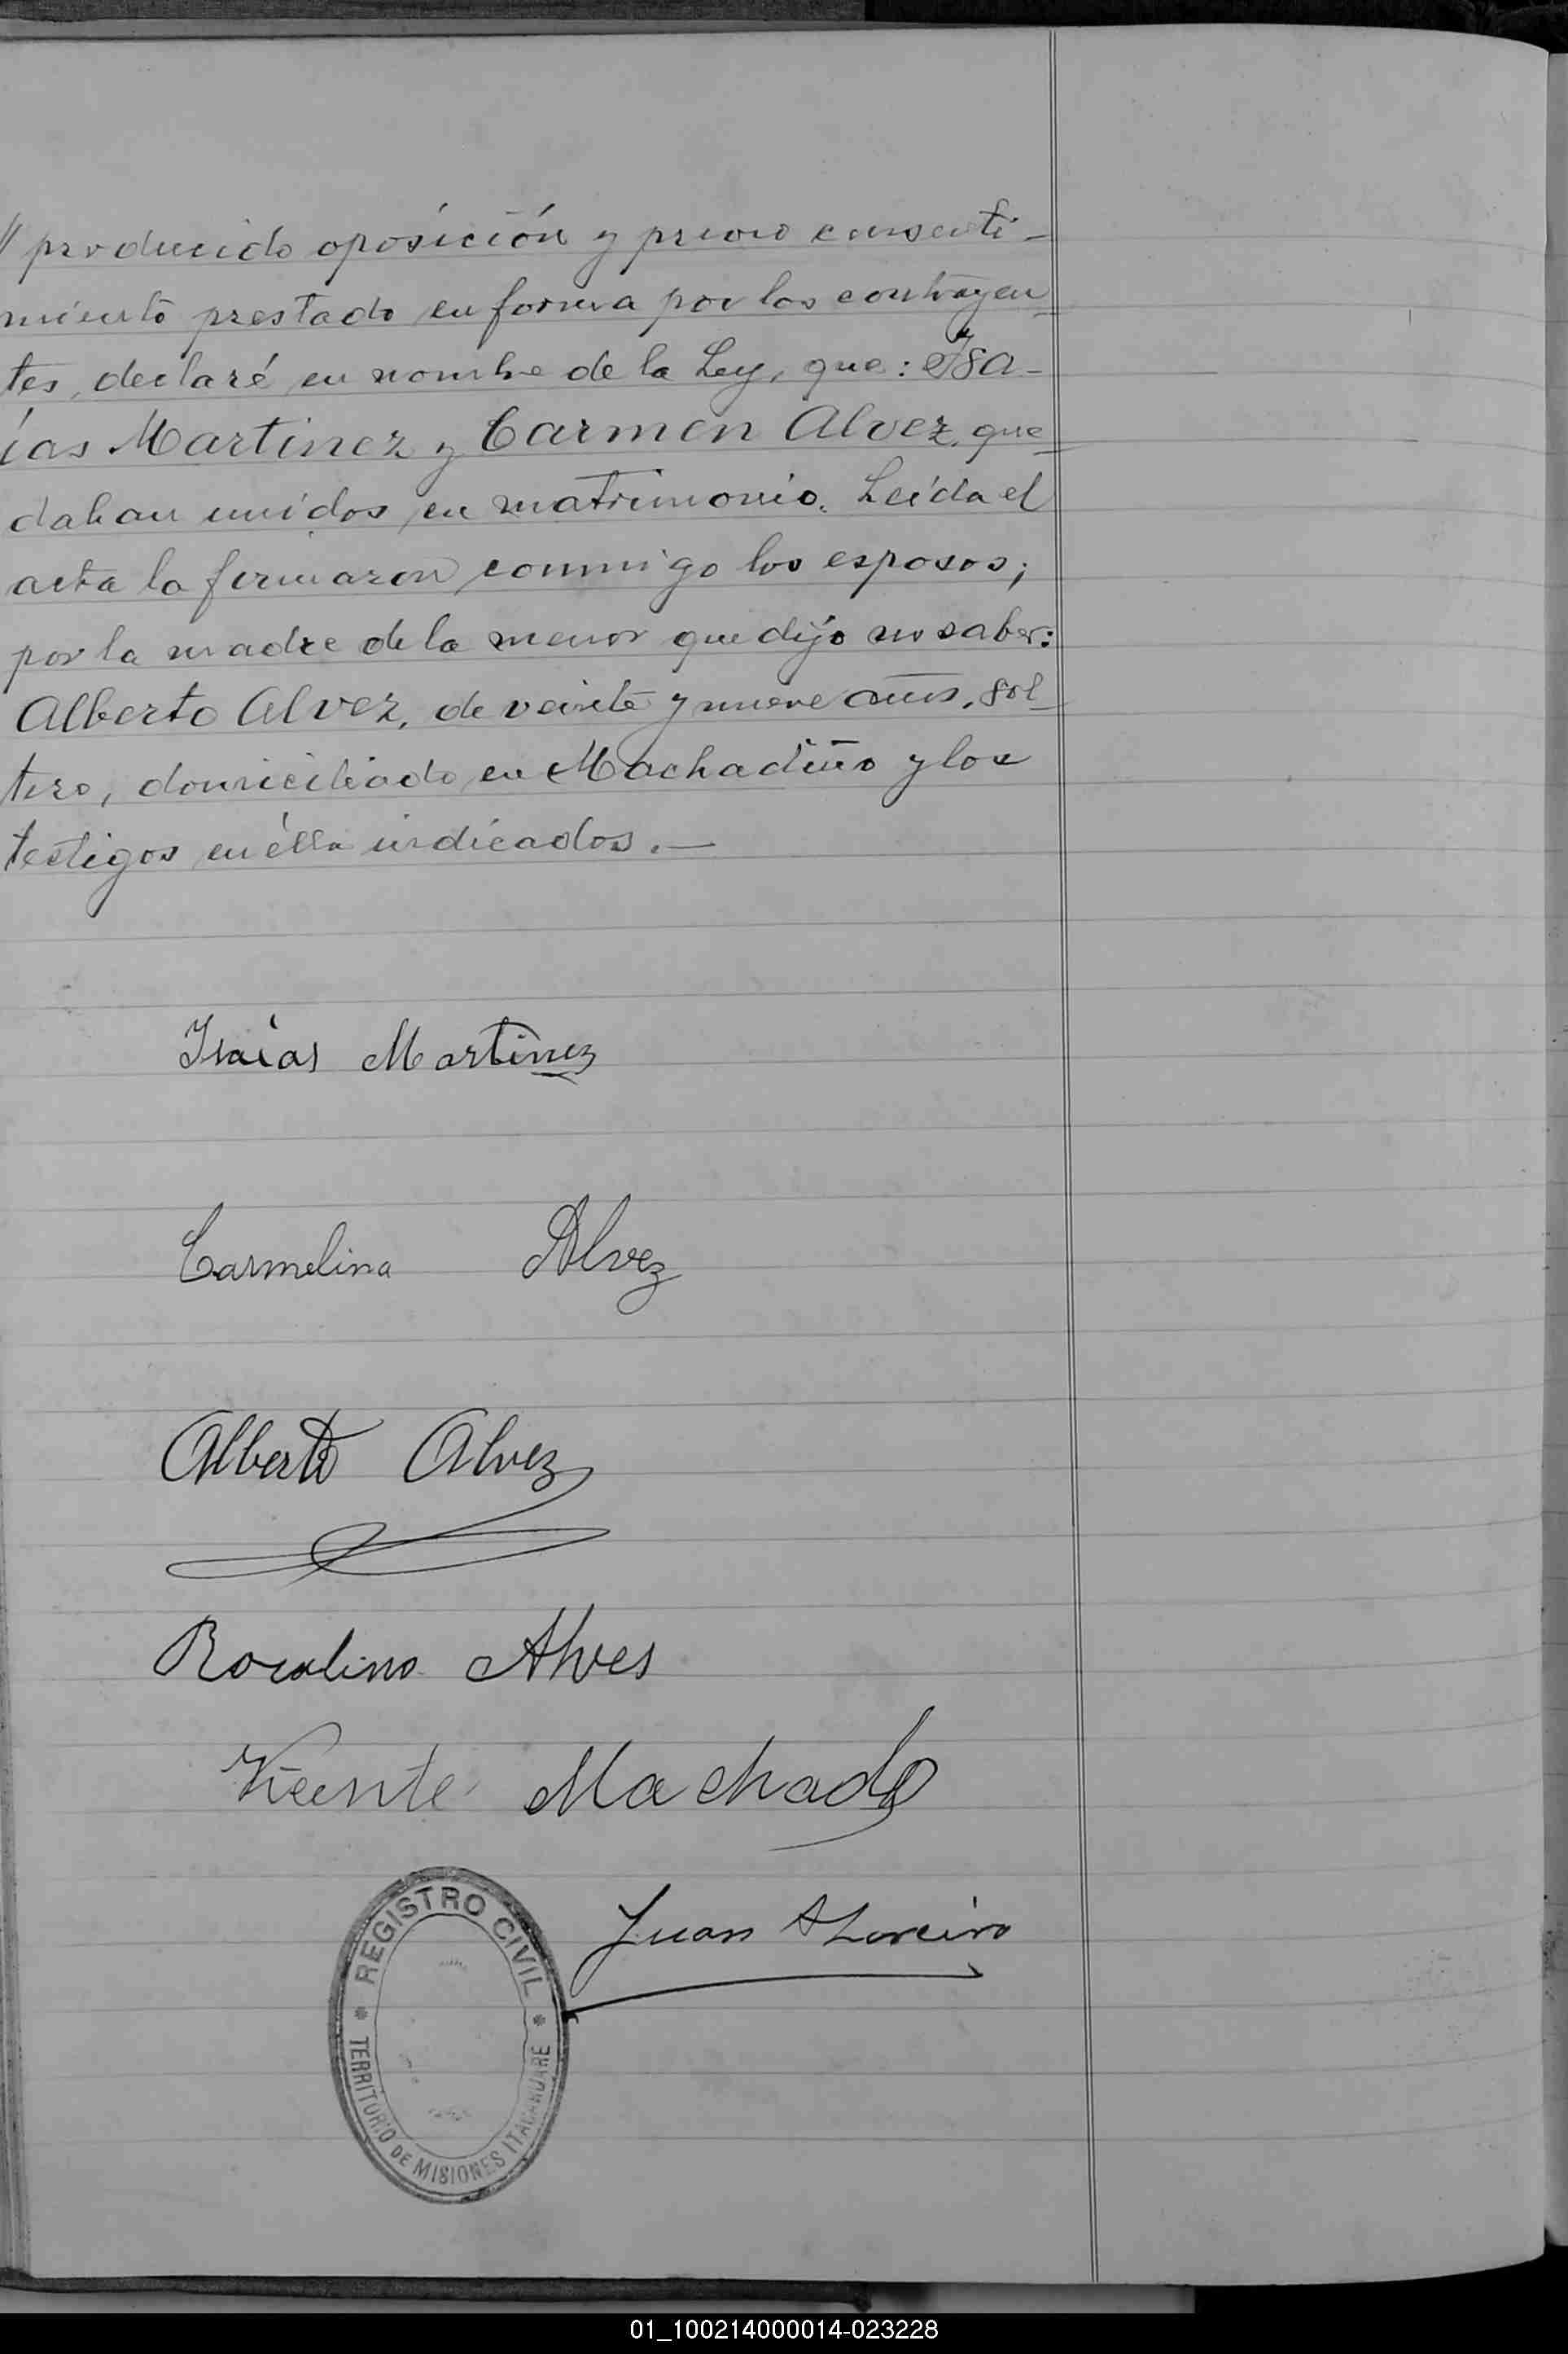 // producido oposición y previo consenti-
miento prestado en forma por los contrayen-
tes, declaré en nombre de la Ley, que: Isa-
ías Martinez y Carmen Alvez, que-
daban unidos en matrimonio. Leída el
acta la firmaron conmigo los esposos;
por la madre de la menor que dijo no saber:
Alberto Alvez, de veinte y nueve años, sol-
tero, domiciliado en Machadiño y los
testigos en élla indicados.—
Isaías Martinez
Carmelina Alvez
Alberto Alvez
Rosalino Alves
Vicente Machado
Juan A Loreiro
REGISTRO CIVIL
TERRITORIO DE MISIONES ITACARUARE
01_100214000014-023228